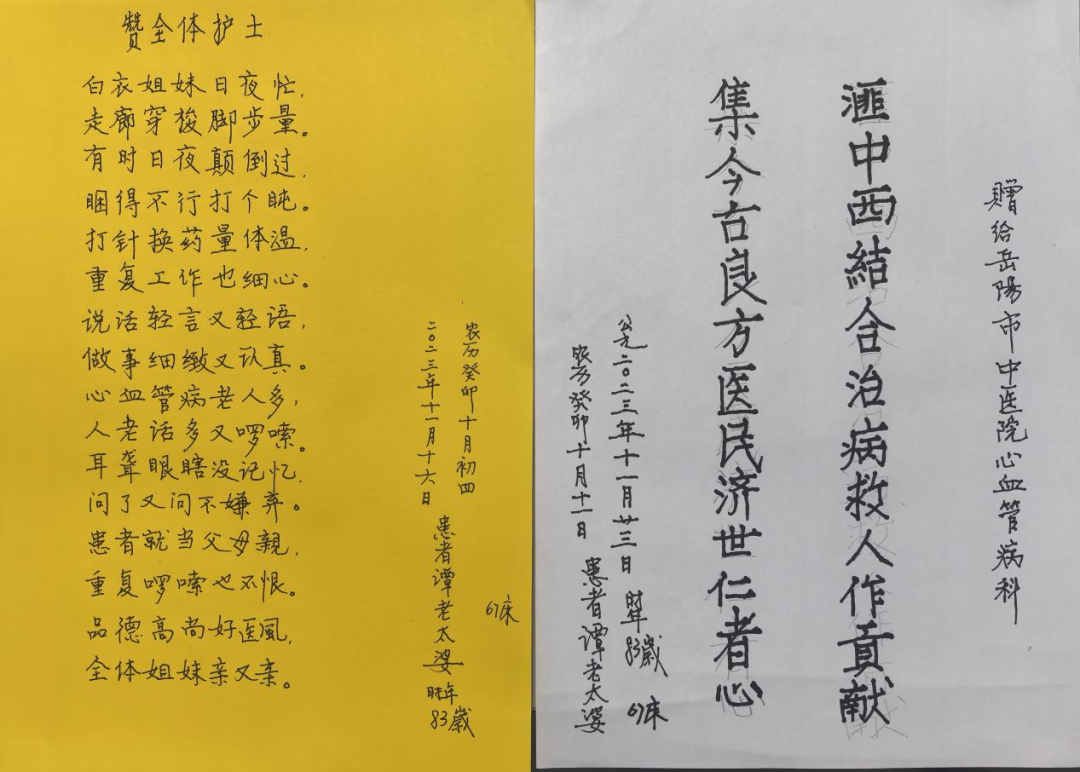 赞全体护士
白衣姐妹日夜忙,
走廊穿梭脚步量。
有时日夜颠倒过,
睏得不行打个盹。
打针换药量体温,
重复工作也细心。
说话轻言又轻语,
做事细緻又认真。
心血管病老人多,
人老话多又啰嗦。
耳聋眼瞎没记忆,
问了又问不嫌弃。
患者就当父母親,
重复啰嗦也不恨。
品德高尚好医風,
全体姐妹亲又亲。
农历癸卯十月初四
二〇二三年十一月十六日
患者谭老太婆 时年83歲
67床
贈给岳陽市中医院心血管病科
滙中西結合治病救人作貢献
集今古良方医民济世仁者心
公元二〇二三年十一月廿三日 时年83歲 67床
农历癸卯十月十一日 患者谭老太婆